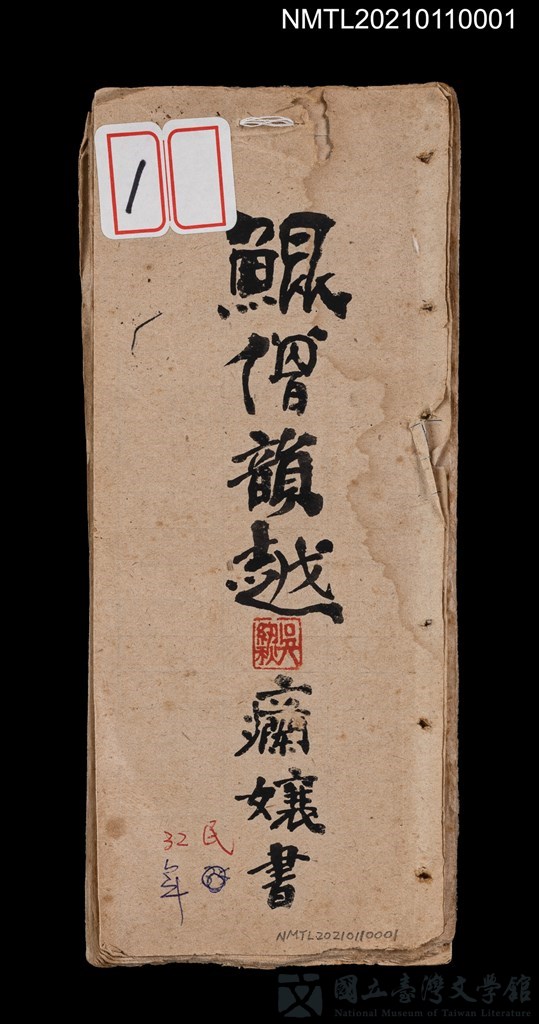 NMTL20210110001
1
鯤僧韻越
吳紉秋
孃書
民
32年
NMTL20210110001
國立臺灣文學館
National Museum of Taiwan Literature